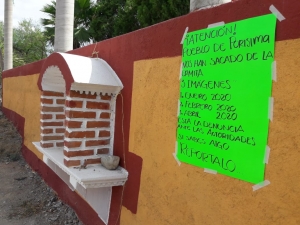 ¡ATENCIÓN!
PUEBLO DE PURISIMA
NOS HAN SACADO DE LA
URNITA
3 IMAGENES
1 ENERO 2020
4 FEBRERO 2020
ABRIL 2020
ESTA LA DENUNCIA
ANTE LAS AUTORIDADES
SI SABES ALGO
REPORTALO